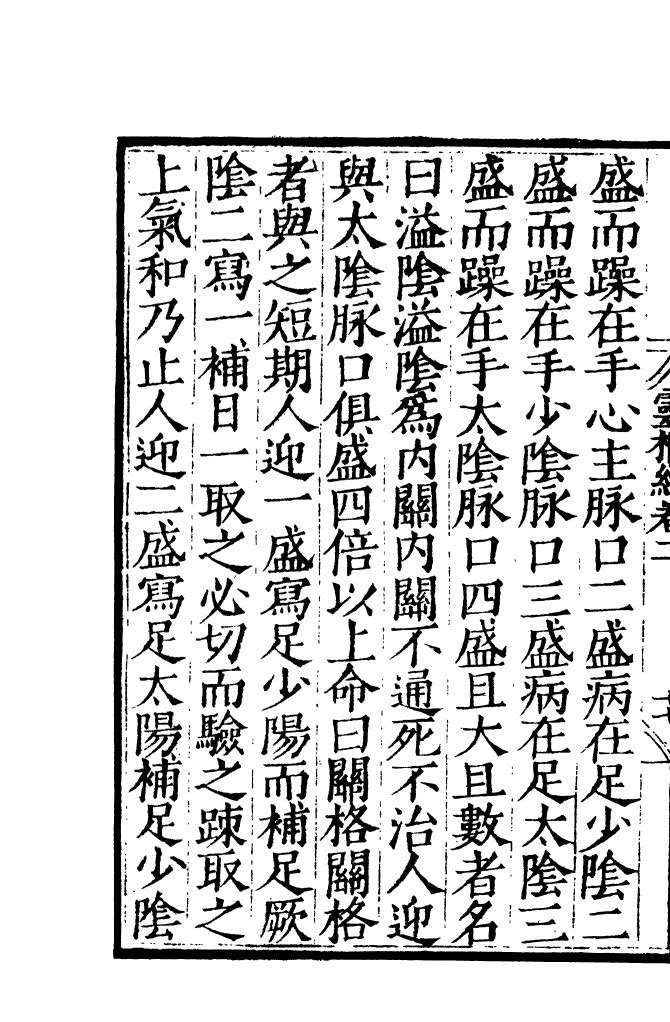 靈樞經卷二
盛而躁在手心主脉口二盛病在足少陰二
盛而躁在手少陰脉口三盛病在足太陰三
盛而躁在手太陰脉口四盛且大且數者名
曰溢陰溢陰爲内關内關不通死不治人迎
與太陰脉口俱盛四倍以上命曰關格關格
者與之短期人迎一盛寫足少陽而補足厥
陰二寫一補日一取之必切而驗之踈取之
上氣和乃止人迎二盛寫足太陽補足少陰